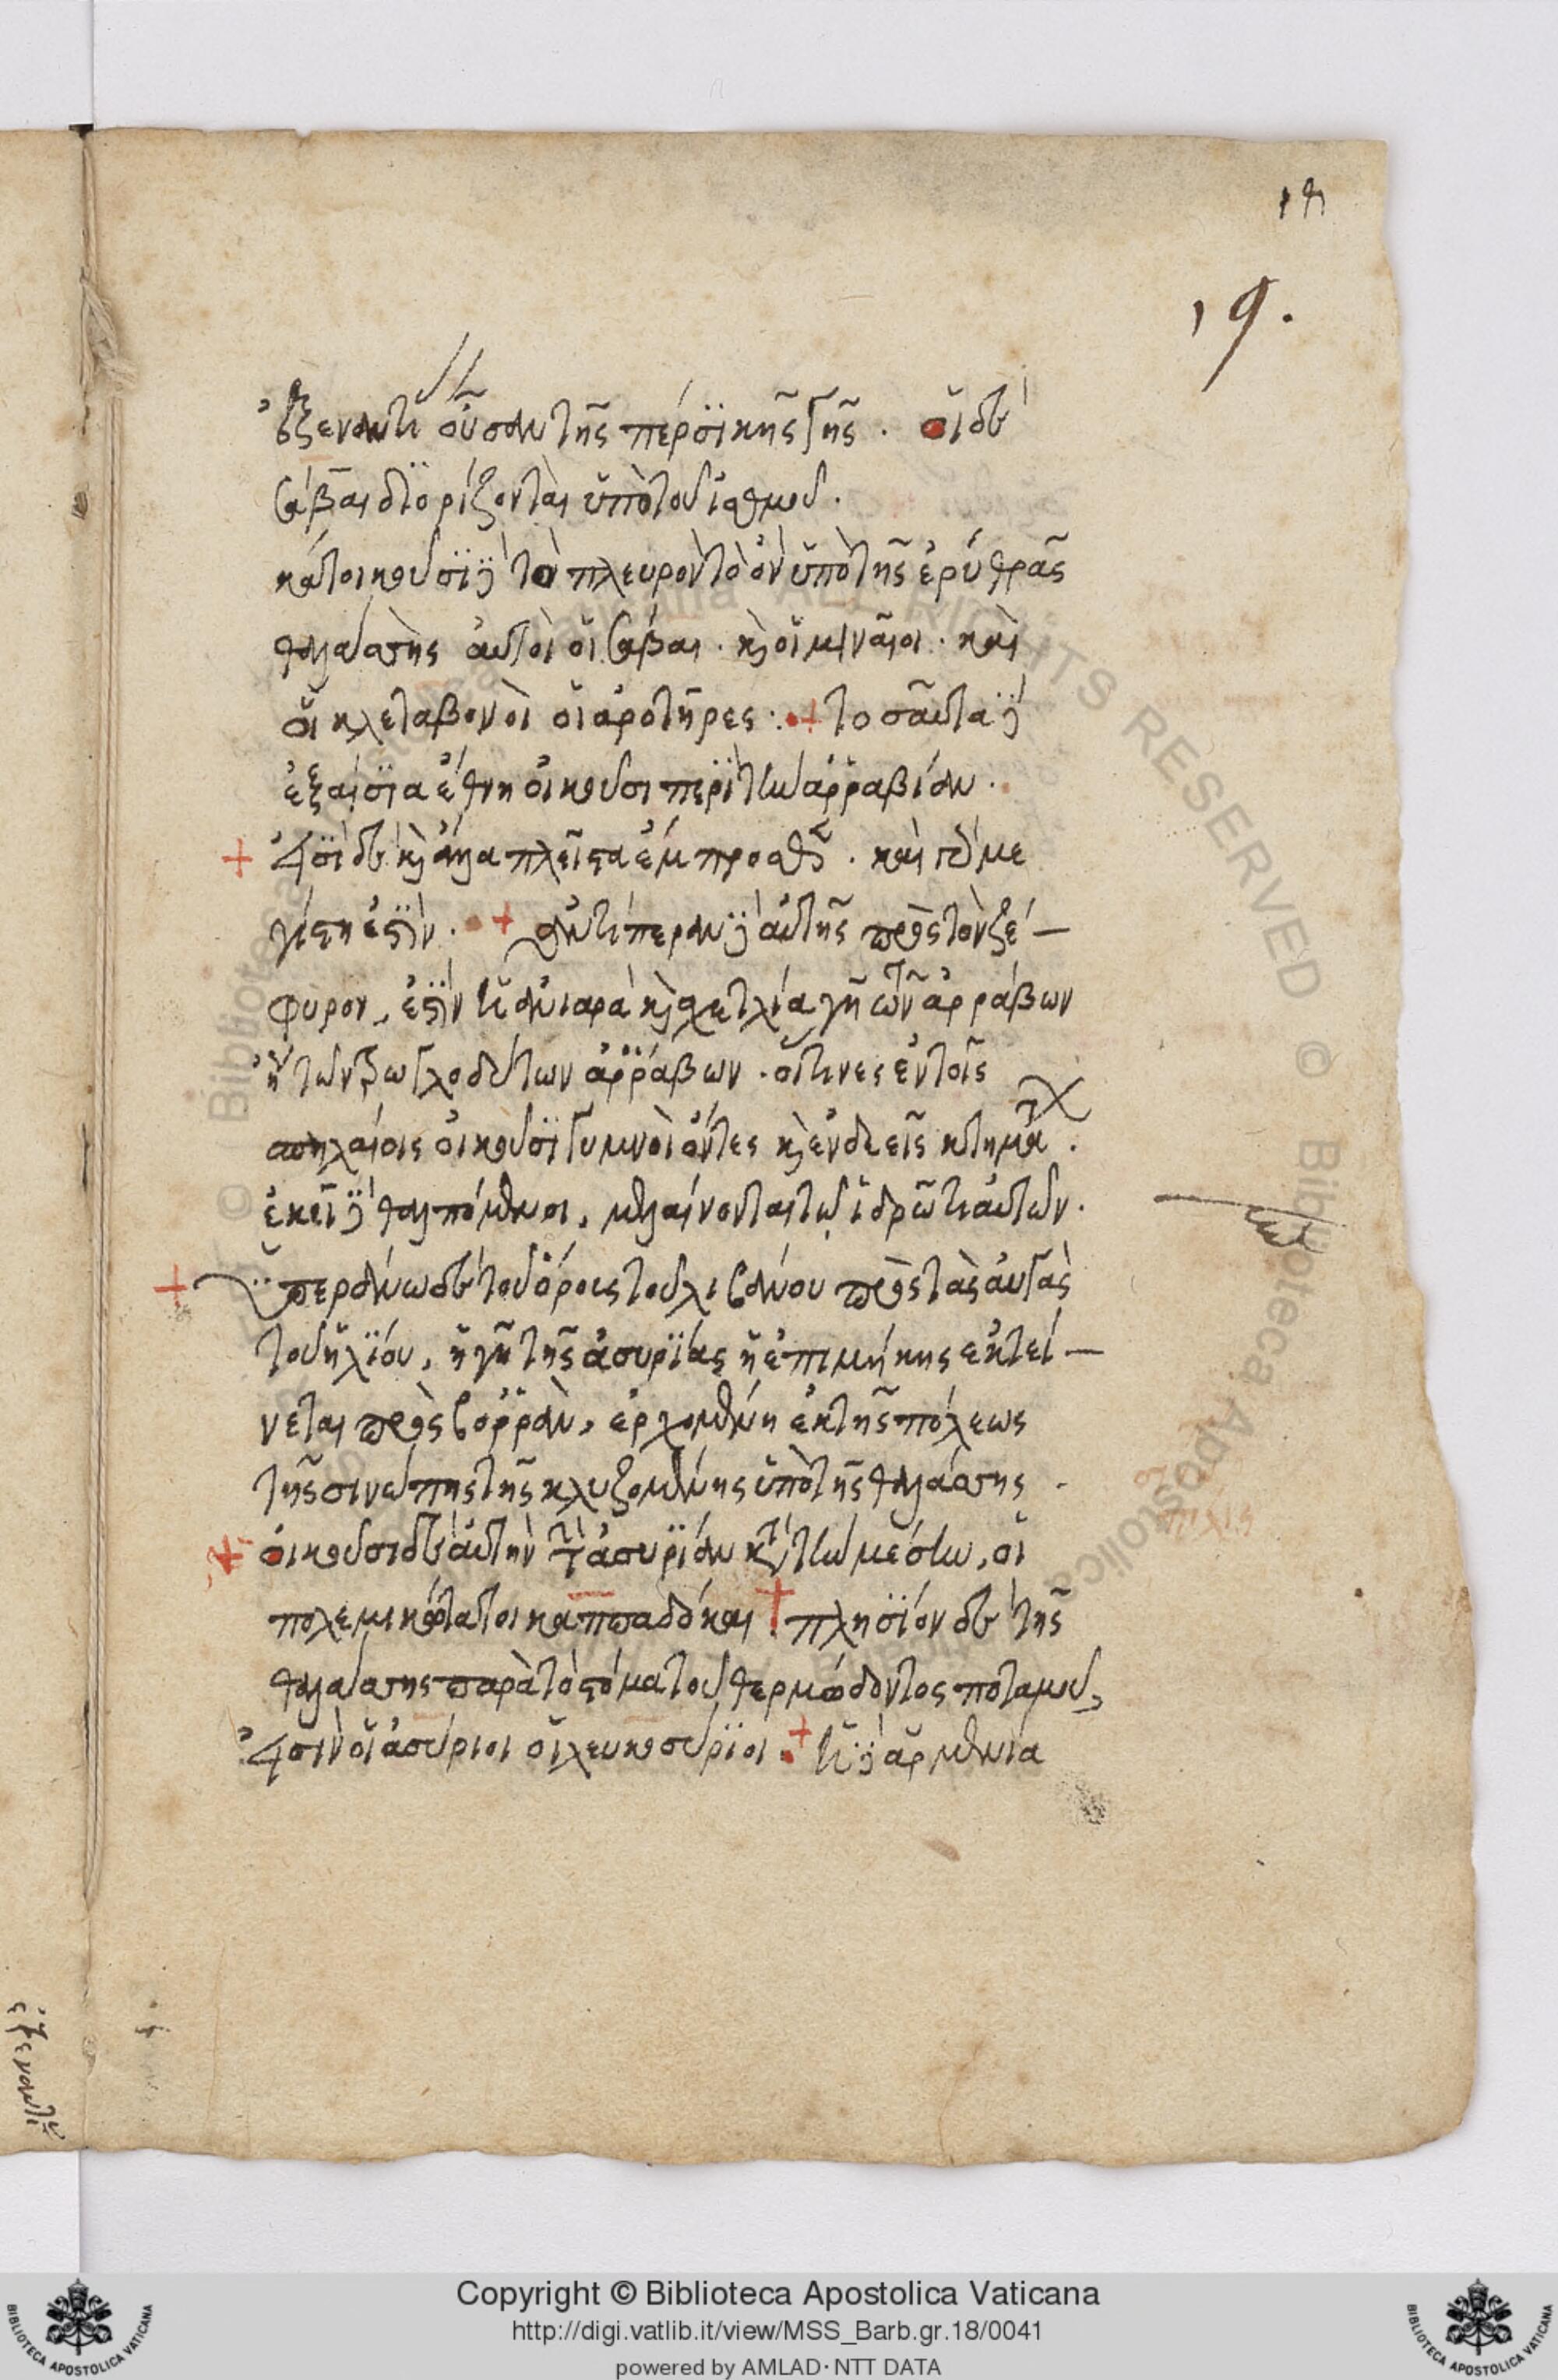 ιθ
19.
ἐξεναντί οὖσαν τῆς περσικῆς γῆς . οἱ δὲ
σάβαι διορίζονται ὑπὸ τοῦ ἰσθμοῦ .
κατοικοῦσι γὰρ τὸ πλευρὸν τὸ ὂν ὑπὸ τῆς ἐρυθρᾶς
θαλάσσης αὐτοὶ οἱ σάβαι . καὶ οἱ μιναῖοι . καὶ
οἱ κλεταβονοὶ οἱ ἀροτῆρες . + τοσαῦτα γὰρ
ἐξαίσια ἔθνη οἰκοῦσι περὶ τὴν ἀρραβίαν .
+ εἰσὶ δὲ καὶ ἄλλα πλεῖστα ἔμπροσθεν . καὶ γὰρ με
γίστη ἐστὶν . + ἀντιπέραν γὰρ αὐτῆς πρὸς τὸν ζέ-
φυρον , ἐστὶν ἡ ἀνιαρὰ καὶ σχετλία γῆ τῶν ἀρράβων
ἢ τῶν τρωγλοδύτων ἀρράβων . οἵτινες ἐν τοῖς
σπηλαίοις οἰκοῦσι γυμνοὶ ὄντες καὶ ἐνδεεῖς κτημάτων .
ἐκεῖ γὰρ θαλπόμενοι , μελαίνονται τῷ ἱδρῶτι αὐτῶν .
+ ὑπεράνω δὲ τοῦ ὄρους τοῦ λιβάνου πρὸς τὰς αὐγὰς
τοῦ ἡλίου , ἡ γῆ τῆς ἀσυρίας ἡ ἐπιμήκης ἐκτεί-
νεται πρὸς βορρὰν , ἐρχομένη ἐκ τῆς πόλεως
τῆς σινώπης τῆς κλυζομένης ὑπὸ τῆς θαλάσσης .
+ οἰκοῦσι δὲ αὐτὴν τὴν ἀσυρίαν κατὰ τὴν μέσην , οἱ
πολεμικώτατοι καππαδόκαι + πλησίον δὲ τῆς
θαλάσσης παρὰ τὸ στόμα τοῦ θερμώδοντος ποταμοῦ ,
εἰσὶν οἱ ἀσύριοι οἱ λευκοσύριοι . + ἡ γὰρ ἀρμενία
ἐξεναντί
Copyright © Biblioteca Apostolica Vaticana
http://digi.vatlib.it/view/MSS_Barb.gr.18/0041
powered by AMLAD · NTT DATA